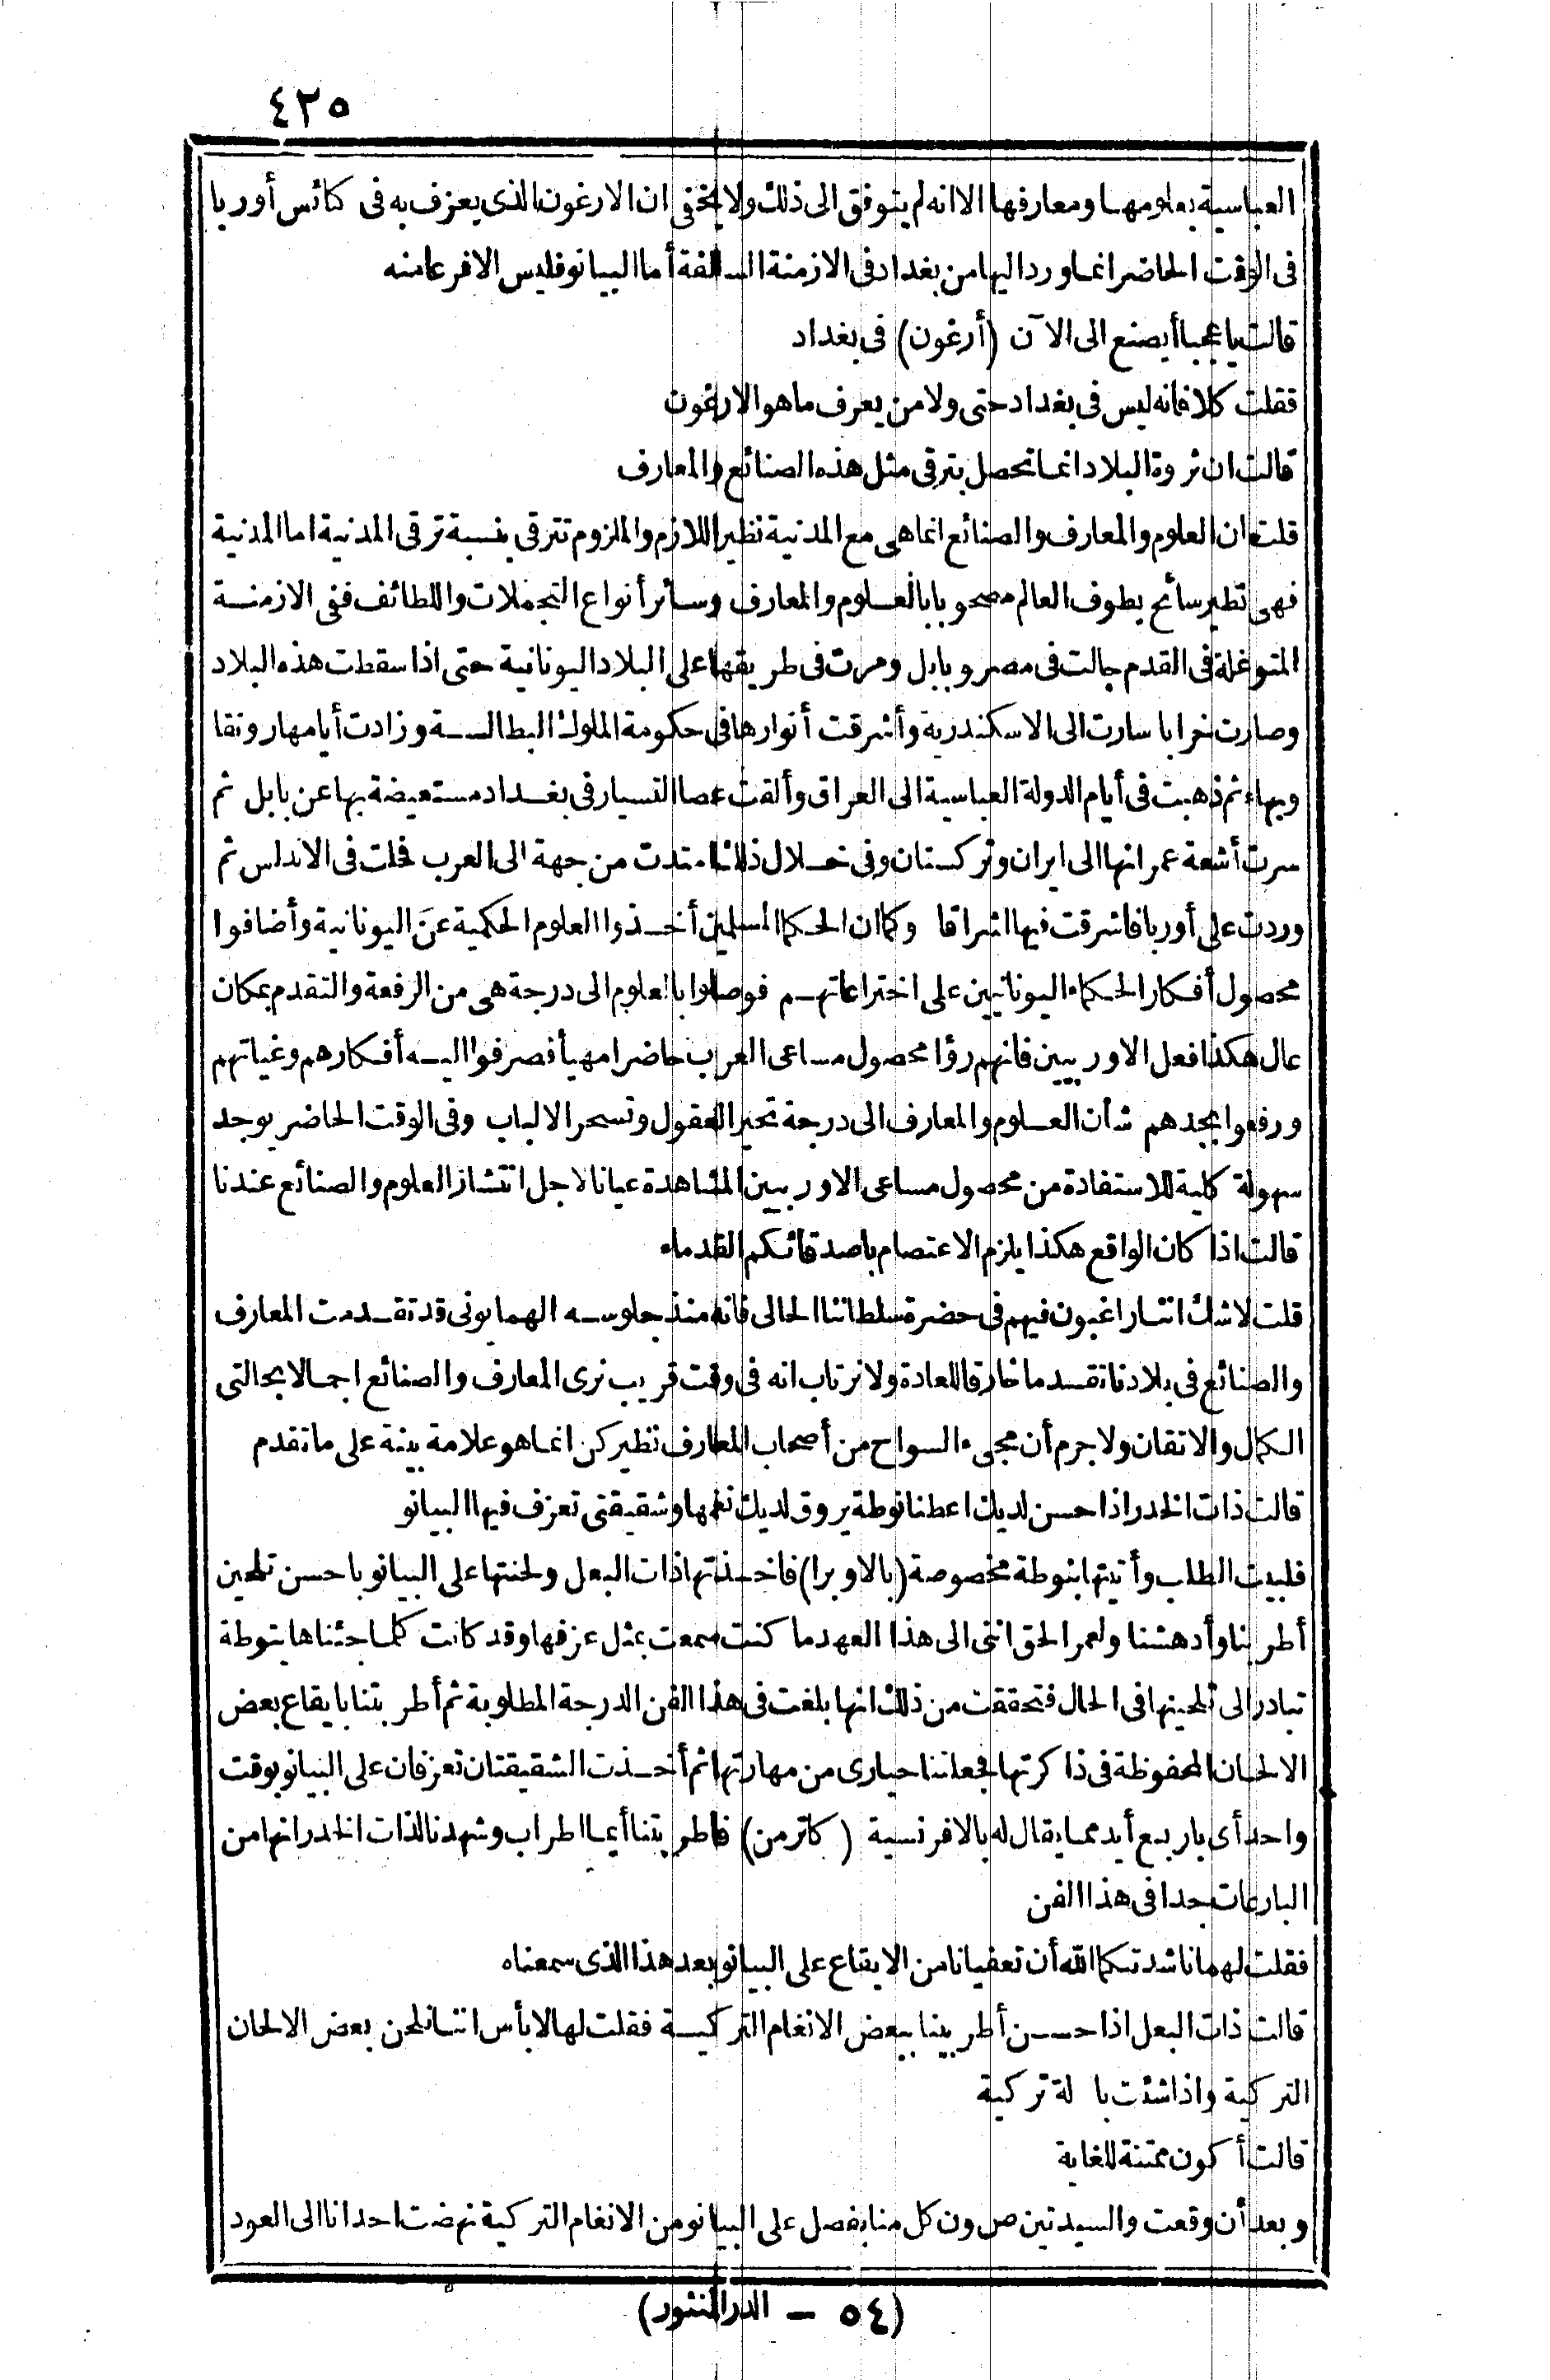 ٤٢٥
العباسية بعلومها ومعارفها الا انه لم يتوفق الى ذلك ولا يخفى ان الارغون الذى يعزف به فى كنائس أوربا
فى الوقت الحاضر انما ورد اليها من بغداد فى الازمنة السالفة أما البيانو فليس الا فرعا منه
قالت يا عجبا أيصنع الى الآن (أرغون) فى بغداد
فقلت كلا فانه ليس فى بغداد حتى ولا من يعرف ما هو الارغون
قالت ان ثروة البلاد انما تحصل بترقى مثل هذه الصنائع والمعارف
قلت ان العلوم والمعارف والصنائع انما هى مع المدنية نظير اللازم والملزوم تترقى بنسبة ترقى المدنية اما المدنية
فهى نظير سائح يطوف العالم مصحوبا بالعلوم والمعارف وسائر أنواع التجملات واللطائف ففى الازمنة
المتوغلة فى القدم جالت فى مصر وبابل ومرت فى طريقها على البلاد اليونانية حتى اذا سقطت هذه البلاد
وصارت خرابا سارت الى الاسكندرية وأشرقت أنوارها فى حكومة الملوك البطالسة وزادت أيامها رونقا
وبهاء ثم ذهبت فى أيام الدولة العباسية الى العراق وألقت عصا التسيار فى بغداد مستعيضة بها عن بابل ثم
سرت أشعة عمرانها الى ايران وتركستان وفى خلال ذلك امتدت من جهة الى العرب فحلت فى الاندلس ثم
وردت على أوربا فاشرقت فيها اشراقا وكما ان الحكما المسلمين أخذوا العلوم الحكمية عن اليونانية وأضافوا
محصول أفكار الحكماء اليونانيين على اختراعاتهم فوصلوا بالعلوم الى درجة هى من الرفعة والتقدم بمكان
عال هكذا فعل الاوربيين فانهم رؤا محصول مساعى العرب حاضرا مهيأ فصرفوا اليه أفكارهم وغياتهم
ورفعوا بجدهم شأن العلوم والمعارف الى درجة تحير العقول وتسحر الالباب وفى الوقت الحاضر يوجد
سهولة كلية للاستفادة من محصول مساعى الاوربيين المشاهدة عيانا لاجل انتشار العلوم والصنائع عندنا
قالت اذا كان الواقع هكذا يلزم الاعتصام باصدقائكم القدماء
قلت لا شك اننا راغبون فيهم فى حضرة سلطاننا الحالى فانه منذ جلوسه الهمايونى قد تقدمت المعارف
والصنائع فى بلادنا تقدما خارقا للعادة ولا نرتاب انه فى وقت قريب نرى المعارف والصنائع اجمالا بحالتى
الكمال والاتقان ولا جرم أن مجىء السواح من أصحاب المعارف نظيركن انما هو علامة بينة على ما تقدم
قالت ذات الخدر اذا حسن لديك اعطنا نوطة يروق لديك نغمها وشقيقتى تعزف فيها البيانو
فلبيت الطلب وأتيتها بنوطة مخصوصة (بالاوبرا) فاخذتها ذات البعل ولحنتها على البيانو باحسن تلحين
أطربنا وأدهشنا ولعمر الحق اننى الى هذا العهد ما كنت سمعت بمثل عزفها وقد كانت كلما جئناها بنوطة
تبادر الى تلحينها فى الحال فتحققت من ذلك انها بلغت فى هذا الفن الدرجة المطلوبة ثم أطربتنا بايقاع بعض
الالحان المحفوظة فى ذاكرتها فجعلتنا حيارى من مهارتها ثم أخذت الشقيقتان تعزفان على البيانو بوقت
واحد أى باربع أيد مما يقال له بالافرنسية (كاترمن) فاطربتنا أيما اطراب وشهدنا لذات الخدر انها من
البارعات جدا فى هذا الفن
فقلت لهما ناشدتكما الله أن تعفيانا من الايقاع على البيانو بعد هذا الذى سمعناه
قالت ذات البعل اذا حسن أطربينا ببعض الانغام التركية فقلت لها لا بأس اننا نلحن بعض الالحان
التركية واذا شئت با لة تركية
قالت أكون ممتنة للغاية
وبعد أن وقعت والسيدتين ص ون كل منا بفصل على البيانو من الانغام التركية نهضت احدانا الى العود
(٥٤ – الدر المنثور)